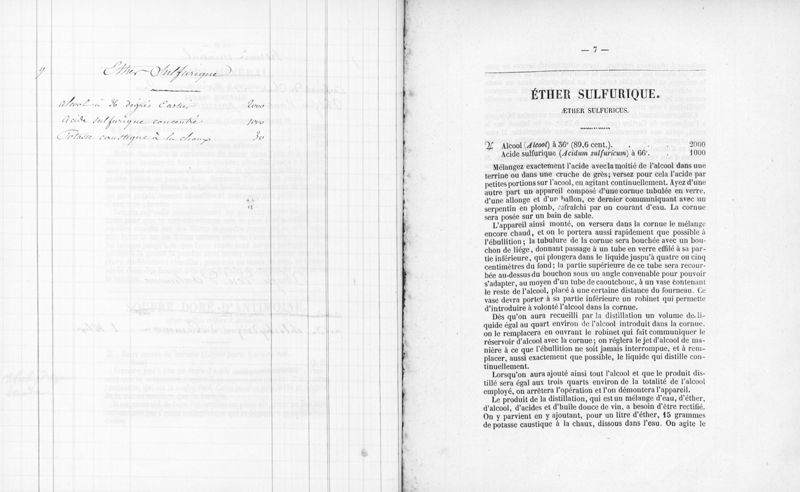 9 Ether Sulfurique
alcool à 36 degrés Cartier 2000
Acide sulfurique concentré 1000
Potasse caustique à la chaux 30
— 7 —
ÉTHER SULFURIQUE.
ÆTHER SULFURICUS.
♃ Alcool (Alcool) à 36° (89,6 cent.). . . 2000
Acide sulfurique (Acidum sulfuricum) à 66°. . 1000
Mélangez exactement l'acide avec la moitié de l'alcool dans une
terrine ou dans une cruche de grès; versez pour cela l'acide par
petites portions sur l'acool, en agitant continuellement. Ayez d'une
autre part un appareil composé d'une cornue tubulée en verre,
d'une allonge et d'un ballon, ce dernier communiquant avec un
serpentin en plomb, rafraîchi par un courant d'eau. La cornue
sera posée sur un bain de sable.
L'appareil ainsi monté, on versera dans la cornue le mélange
encore chaud, et on le portera aussi rapidement que possible à
l'ébullition; la tubulure de la cornue sera bouchée avec un bou-
chon de liége, donnant passage à un tube en verre effilé à sa par-
tie inférieure, qui plongera dans le liquide juspu'à quatre ou cinq
centimètres du fond; la partie supérieure de ce tube sera recour-
bée au-dessus du bouchon sous un angle convenable pour pouvoir
s'adapter, au moyen d'un tube de caoutchouc, à un vase contenant
le reste de l'alcool, placé à une certaine distance du fourneau. Ce
vase devra porter à sa partie inférieure un robinet qui permette
d'introduire à volonté l'alcool dans la cornue.
Dès qu'on aura recueilli par la distillation un volume de li-
quide égal au quart environ de l'alcool introduit dans la cornue,
on le remplacera en ouvrant le robinet qui fait communiquer le
réservoir d'alcool avec la cornue; on réglera le jet d'alcool de ma-
nière à ce que l'ébullition ne soit jamais interrompue, et à rem-
placer, aussi exactement que possible, le liquide qui distille con-
tinuellement.
Lorsqu'on aura ajouté ainsi tout l'alcool et que le produit dis-
tillé sera égal aux trois quarts environ de la totalité de l'alcool
employé, on arrêtera l'opération et l'on démontera l'appareil.
Le produit de la distillation, qui est un mélange d'eau, d'éther,
d'alcool, d'acides et d'huile douce de vin, a besoin d'être rectifié.
On y parvient en y ajoutant, pour un litre d'éther, 15 grammes
de potasse caustique à la chaux, dissous dans l'eau. On agite le